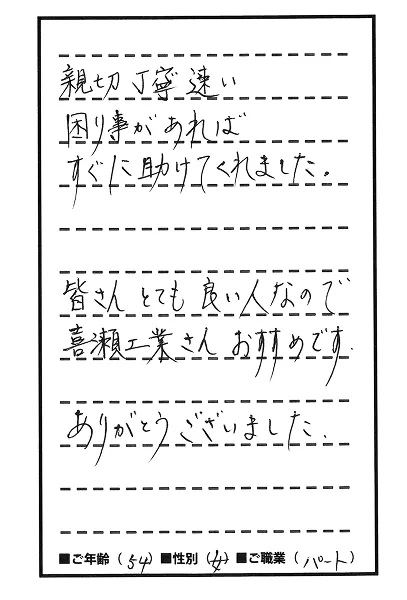 親切 丁寧 速い
困り事があれば
すぐに助けてくれました。
皆さん とても 良い人なので
喜瀬工業さん おすすめです.
ありがとうございました.
■ご年齢(54) ■性別(女) ■ご職業(パート)